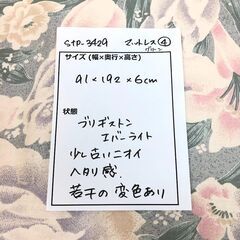 STD-3429 マットレス④
サイズ (幅×奥行×高さ)
91×192×6cm
状態
ブリヂストン
エバーライト
少し古いニオイ
ヘタリ感.
若干の変色あり